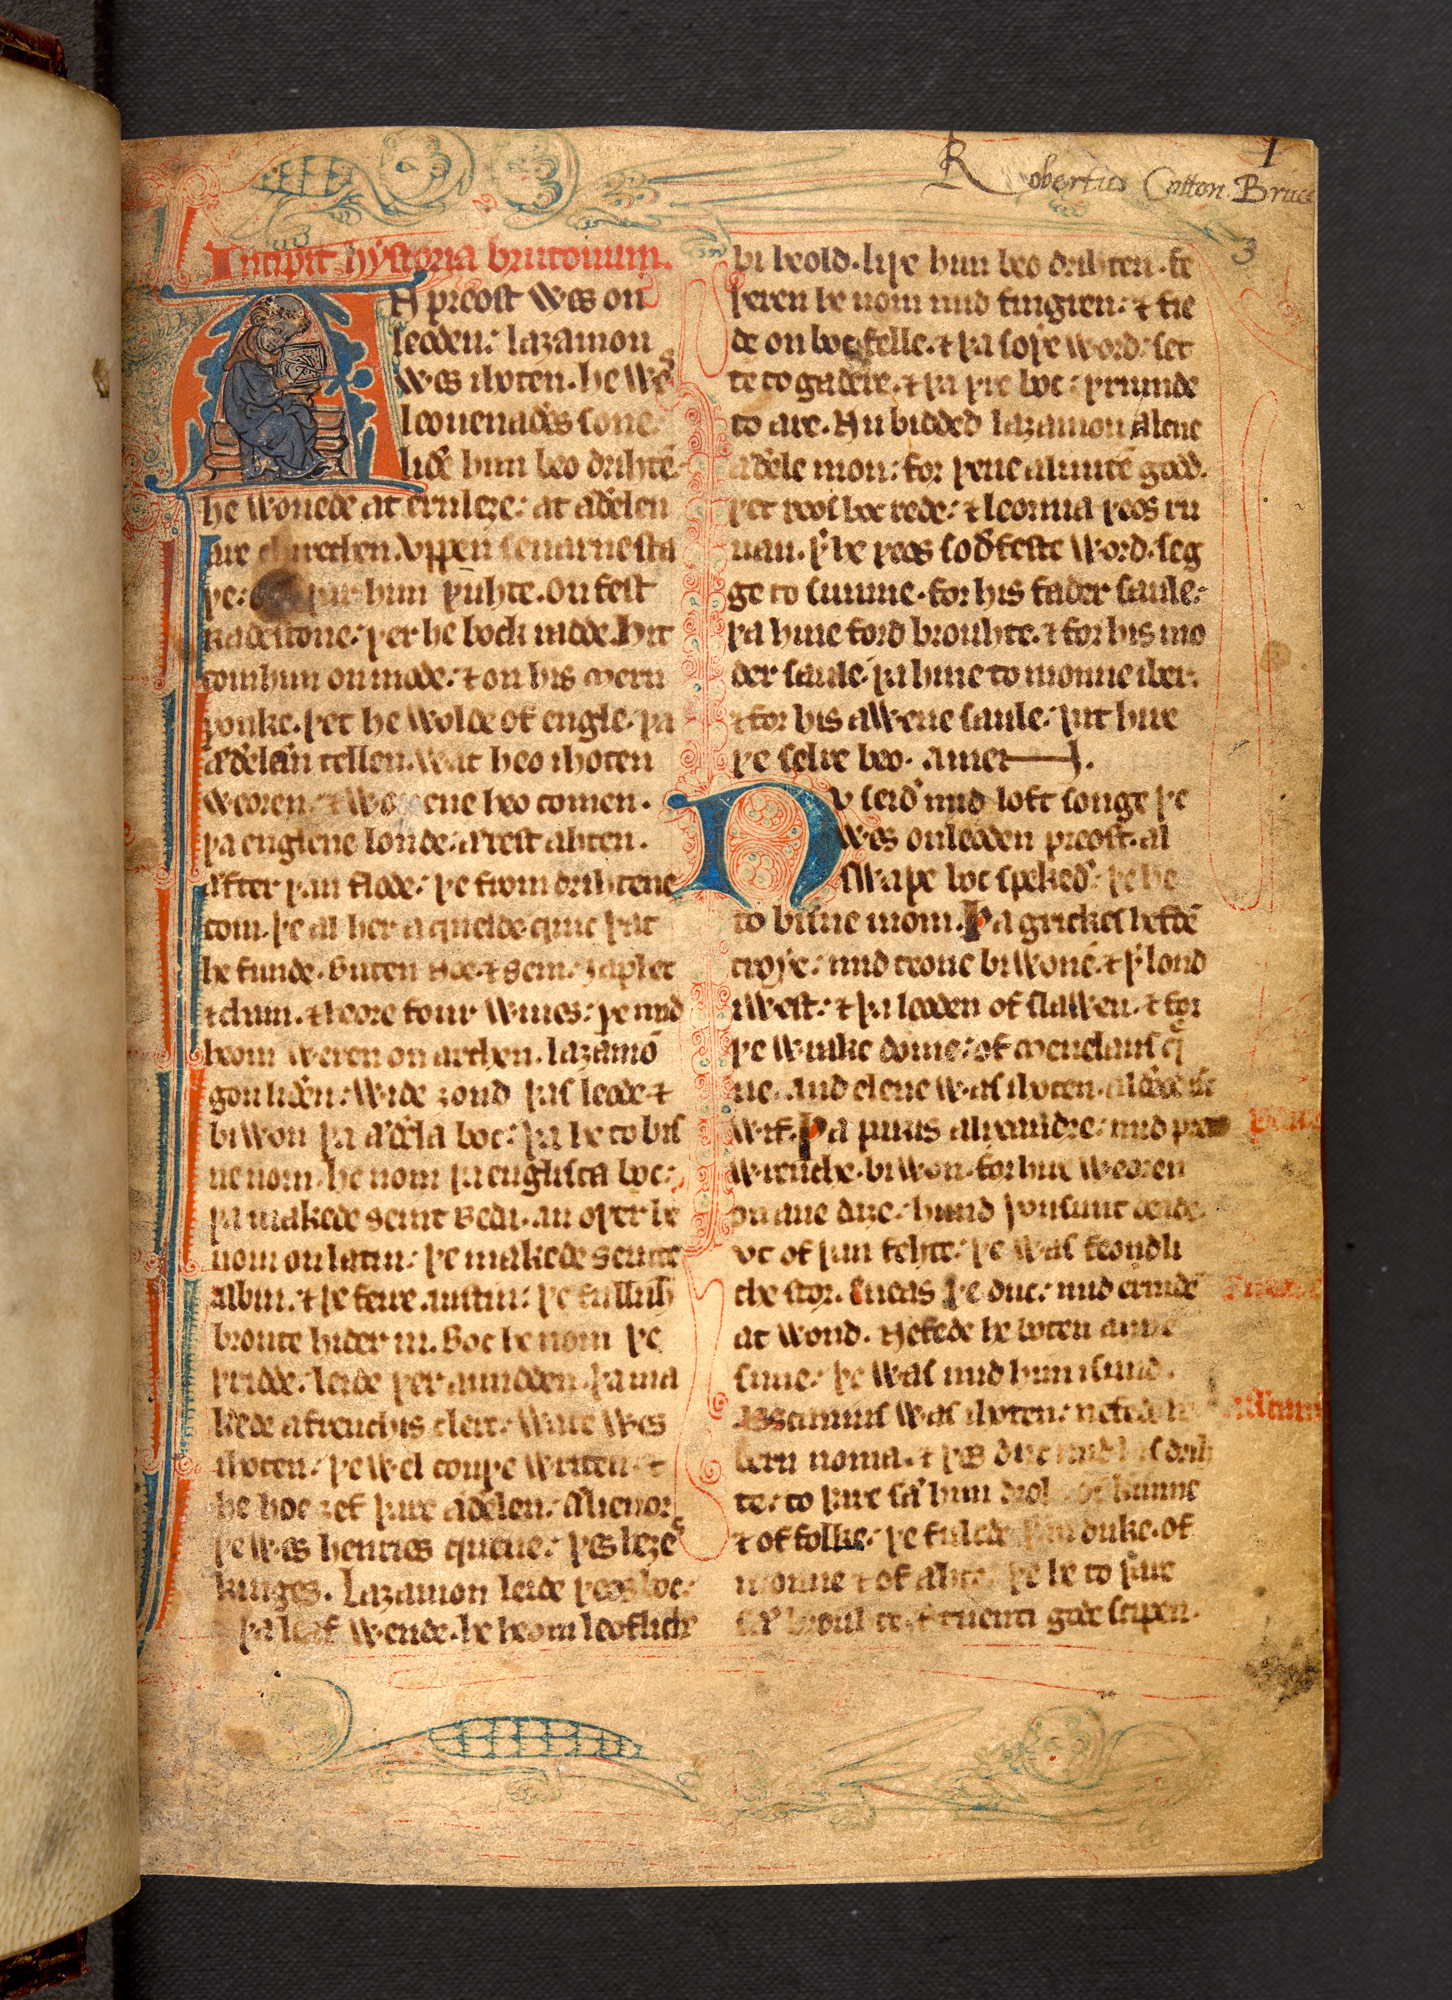 Robertus Cotton Bruce
1
3
Incipit hystoria brutonum.
AN preost wes on
leoden: laȝamon
wes ihoten. he wes
leouenaðes sone:
liðe him beo drihtẽ.
he wonede at ernleȝe: at æðelen
are chirechen. vppen seuarne sta
þe: þar him þuhte. on fest
radestone: þer he bock radde. hit
com him on mode: ⁊ on his mern
þonke. þet he wolde of engle. þa
æðelæn tellen. wat heo ihoten
weoren. ⁊ wonene heo comen.
þa englene londe: ærest ahten.
æfter þan flode: þe from drihtene
com. þe al her a quelde: quic þat
he funde. buten noe. ⁊ sem: japhet
⁊ cham. ⁊ heore four wiues: þe mid
heom weren on archen. laȝamõ
gon liðen: wide ȝond þas leode. ⁊
biwon þa æðela boc: þa he to bis
ne nom. he nom þa englisca boc:
þa makede seint beda. an oþer he
nom on latin: þe makede seinte
albin. ⁊ þe feire austin: þe fulluht
broute hider in. boc he nom þe
þridde: leide þer amidden. þa ma
kede a frenchis clerc: wace wes
ihoten: þe wel couþe writen. ⁊
he hoe ȝef þare æðelen: ælienor
þe wes henries quene: þes heȝes
kinges. laȝamon leide þeos boc:
þa leaf wende. he heom leofliche
bi heold. liþe him beo drihten. fe
þeren he nom mid fingren: ⁊ fie
de on boc felle. ⁊ þa soþe word: set
te to gadere. ⁊ þa þre boc: þrumde
to are. Nu bidded laȝamon alcne
æðele mon: for þene almitẽ god.
þet þeos boc rede: ⁊ leornia þeos ru
nan. þ̃ he þeos soðfeste word. seg
ge to sumne. for his fader saule:
þa hine ford brouhte. ⁊ for his mo
der saule: þa hine to monne iber.
⁊ for his awene saule: þat hire
þe selre beo. amen.
Nv seið mid loft songe þe
wes on leoden preost. al
swa þe boc spekeð: þe he
to bisne inom. Þa grickes hefdẽ
troye: mid teone biwonẽ. ⁊ þ̃ lond
iwest: ⁊ þa leoden of slawen. ⁊ for
þe wrake dome: of menelaus que
ne. and elene was ihoten. aldeodisc
wif. Þa paris alixandre: mid pret
wrenche. biwon. for hire weoren
on ane daie: hund þousunt deade.
vt of þan fehte: þe was feondli
che stor. Eneas þe duc: mid ermdẽ
at wond. Nefede he boten anne
sune: þe was mid him isund.
Asscanius was ihoten: nefede he
bern nomma. ⁊ þes duc mid his drih
te: to þare sæ him droh. of kunne
⁊ of folke: þe fulede þan duke. of
monne ⁊ of ahte: þe he to þare
sæ brouhte. tuenti gode scipen.